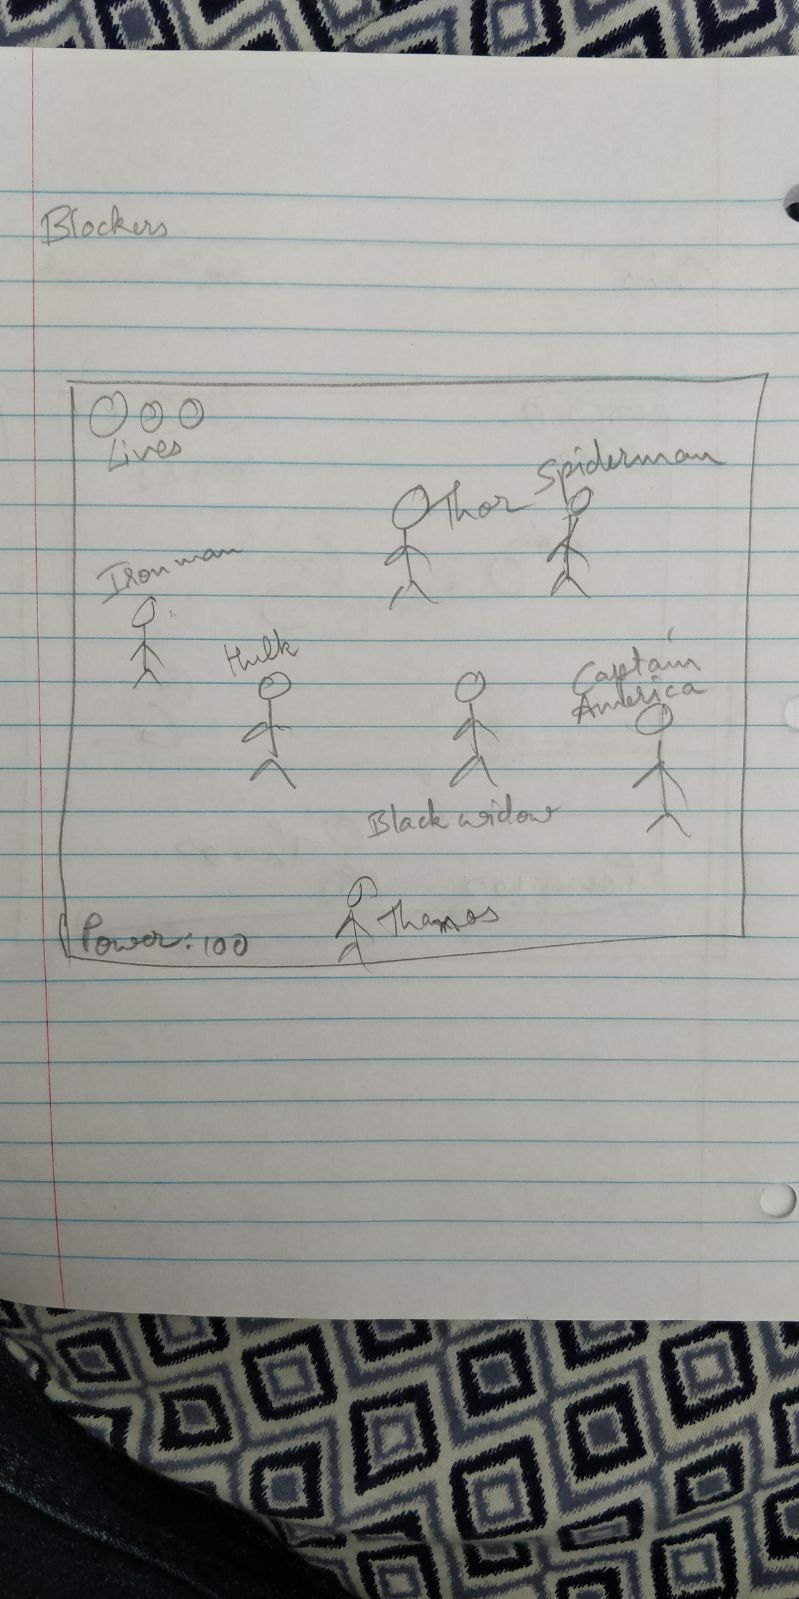 Blockers
Lives
Thor
Spiderman
Ironman
Hulk
Captain
America
Black widow
Thanos
Power: 100